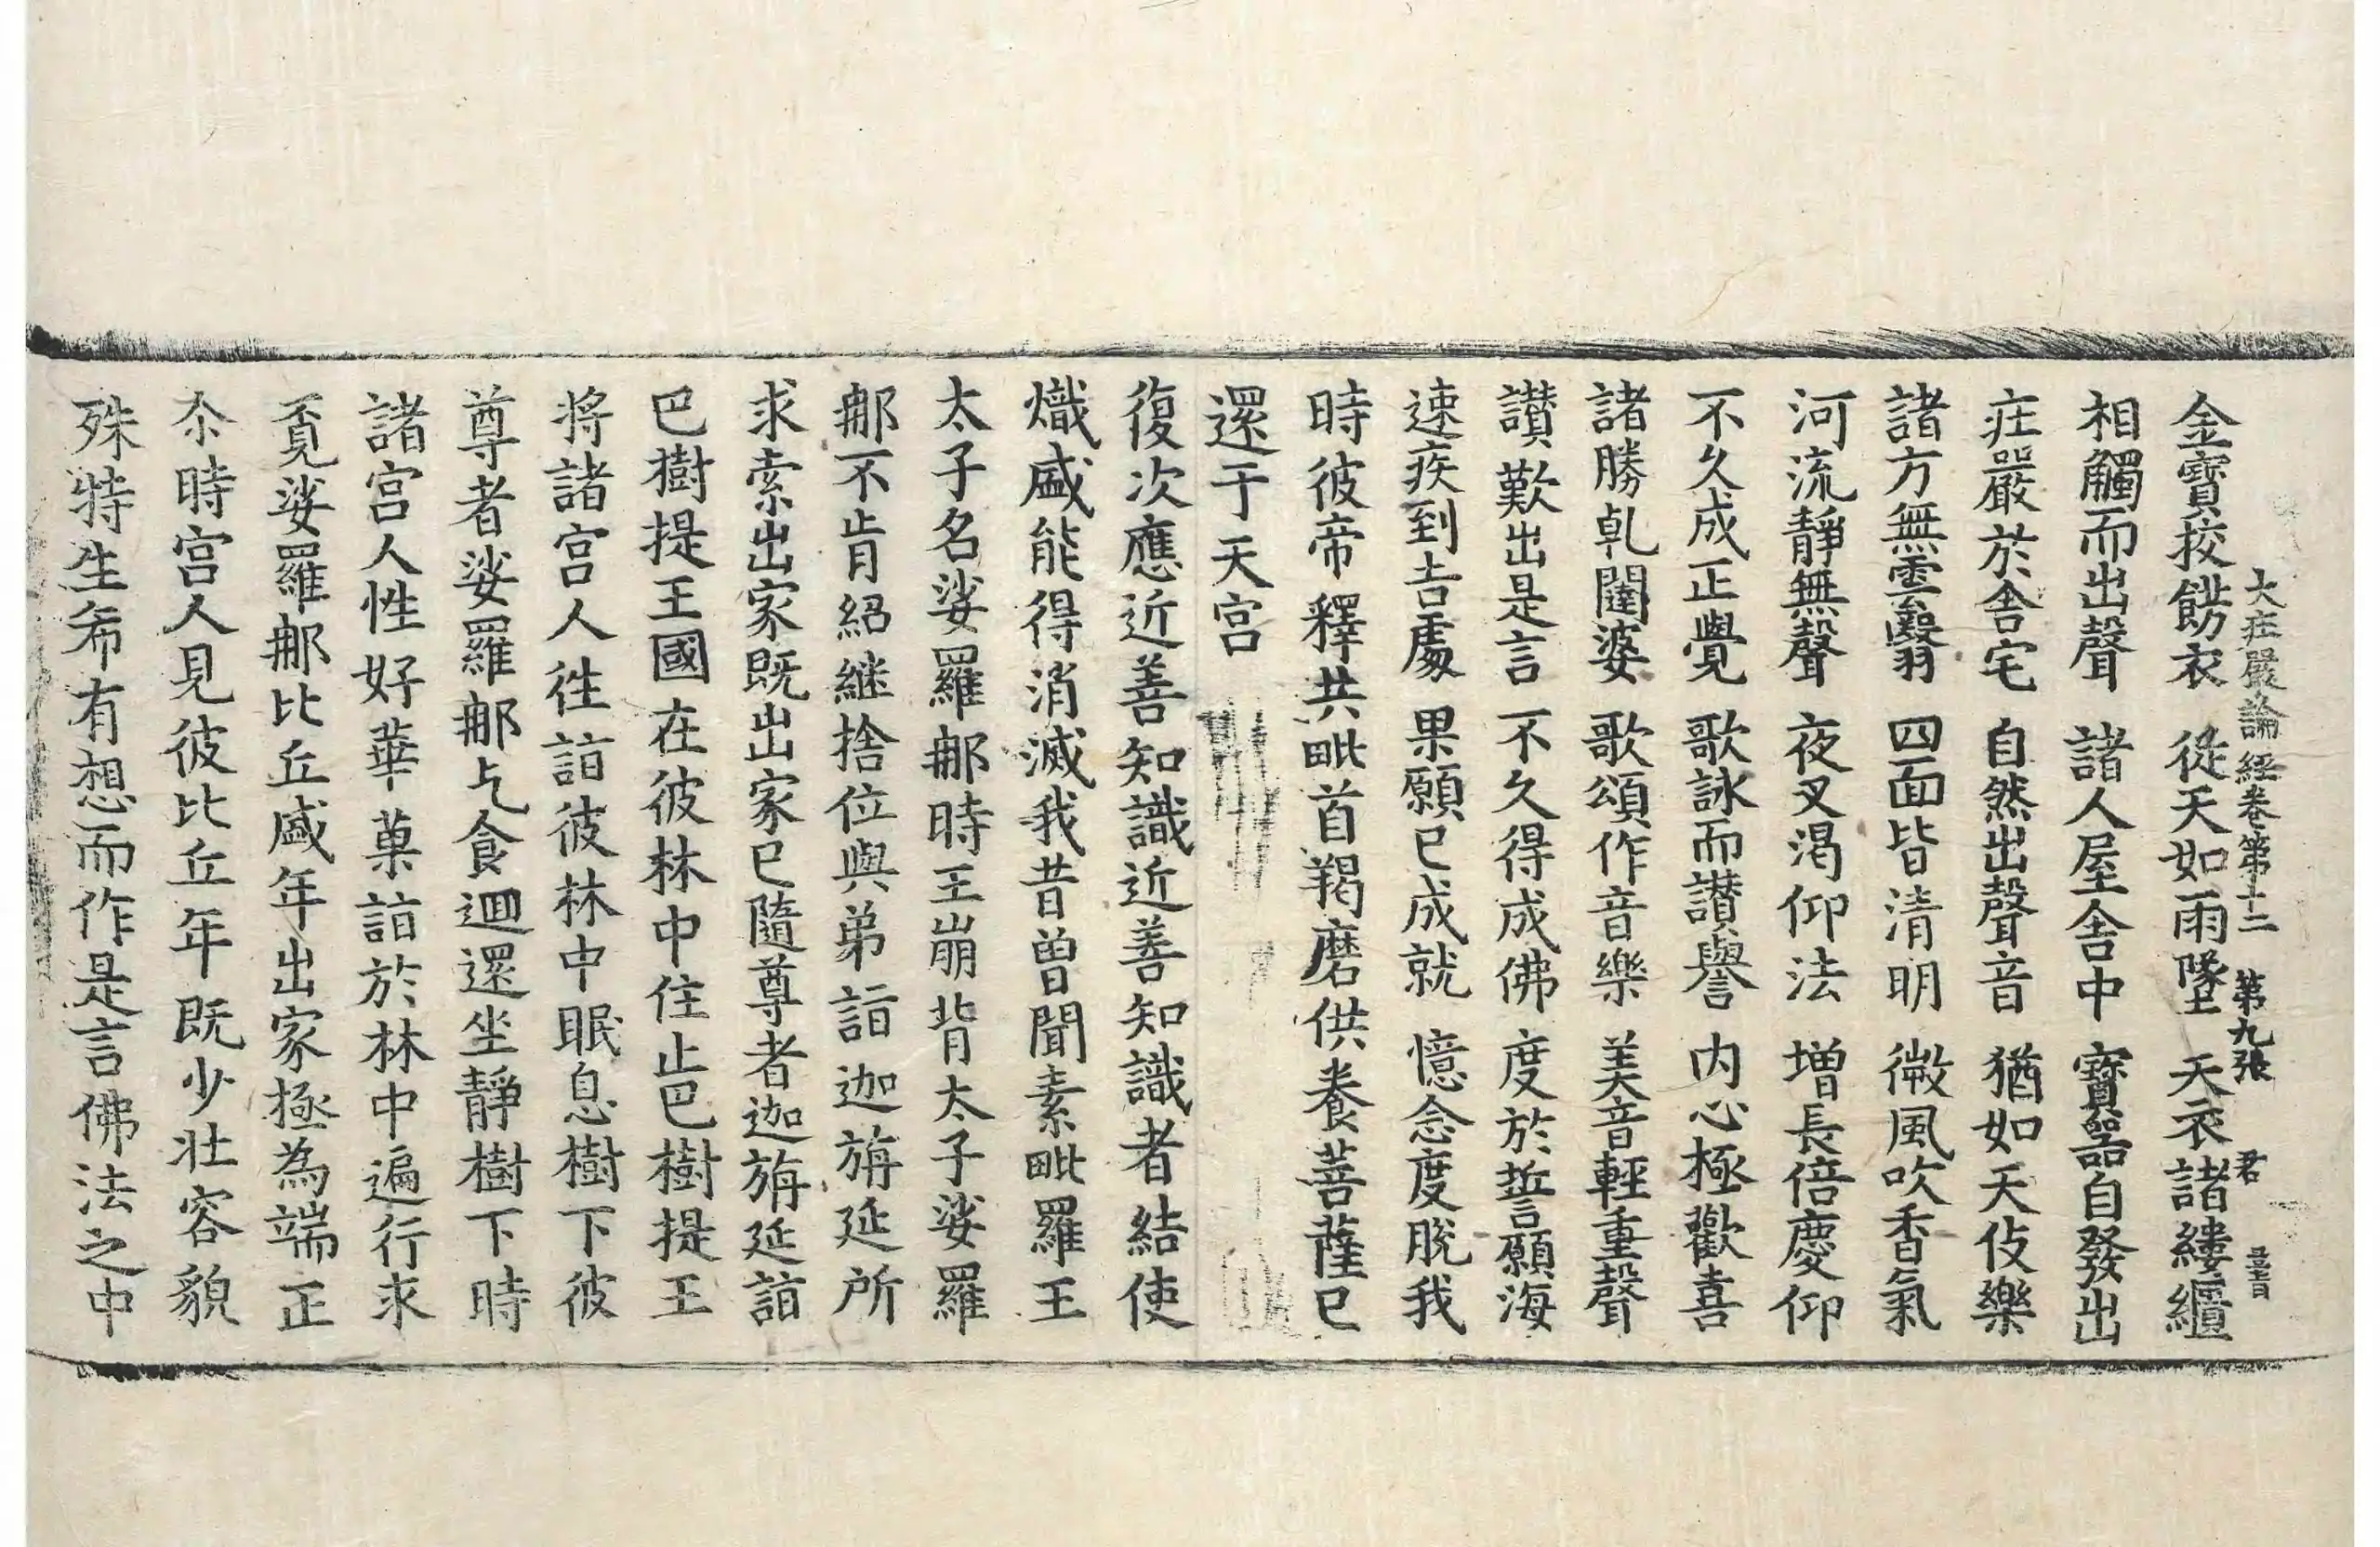 大莊嚴論經卷第十二 第九張 君
金寶挍餝衣 從天如雨墜 天衣諸縷纊
相觸而出聲 諸人屋舍中 寶器自發出
疘嚴於舍宅 自然出聲音 猶如天伎樂
諸方無雲翳 四面皆清明 微風吹香氣
河流靜無聲 夜叉渴仰法 增長倍慶仰
不久成正覺 歌詠而讃譽 内心極歡喜
諸勝乹闥婆 歌頌作音樂 美音輕重聲
讃歎出是言 不久得成佛 度於誓願海
速疾到吉處 果願已成就 憶念度脫我
時彼帝釋共毗首羯磨供養菩薩已
還于天宮
復次應近善知識近善知識者結使
熾盛能得消滅我昔曽聞素毗羅王
太子名娑羅那時王崩背太子娑羅
那不肯紹継捨位與弟詣迦旃延所
求索出家既出家已隨尊者迦旃延詣
巴樹提王國在彼林中住止巴樹提王
将諸宫人徃詣彼林中眠息樹下彼
尊者娑羅那乞食迴還坐靜樹下時
諸宫人性好華菓詣於林中遍行求
覔娑羅那比丘盛年出家極為端正
尒時宫人見彼比丘年既少壯容貌
殊特生希有想而作是言佛法之中